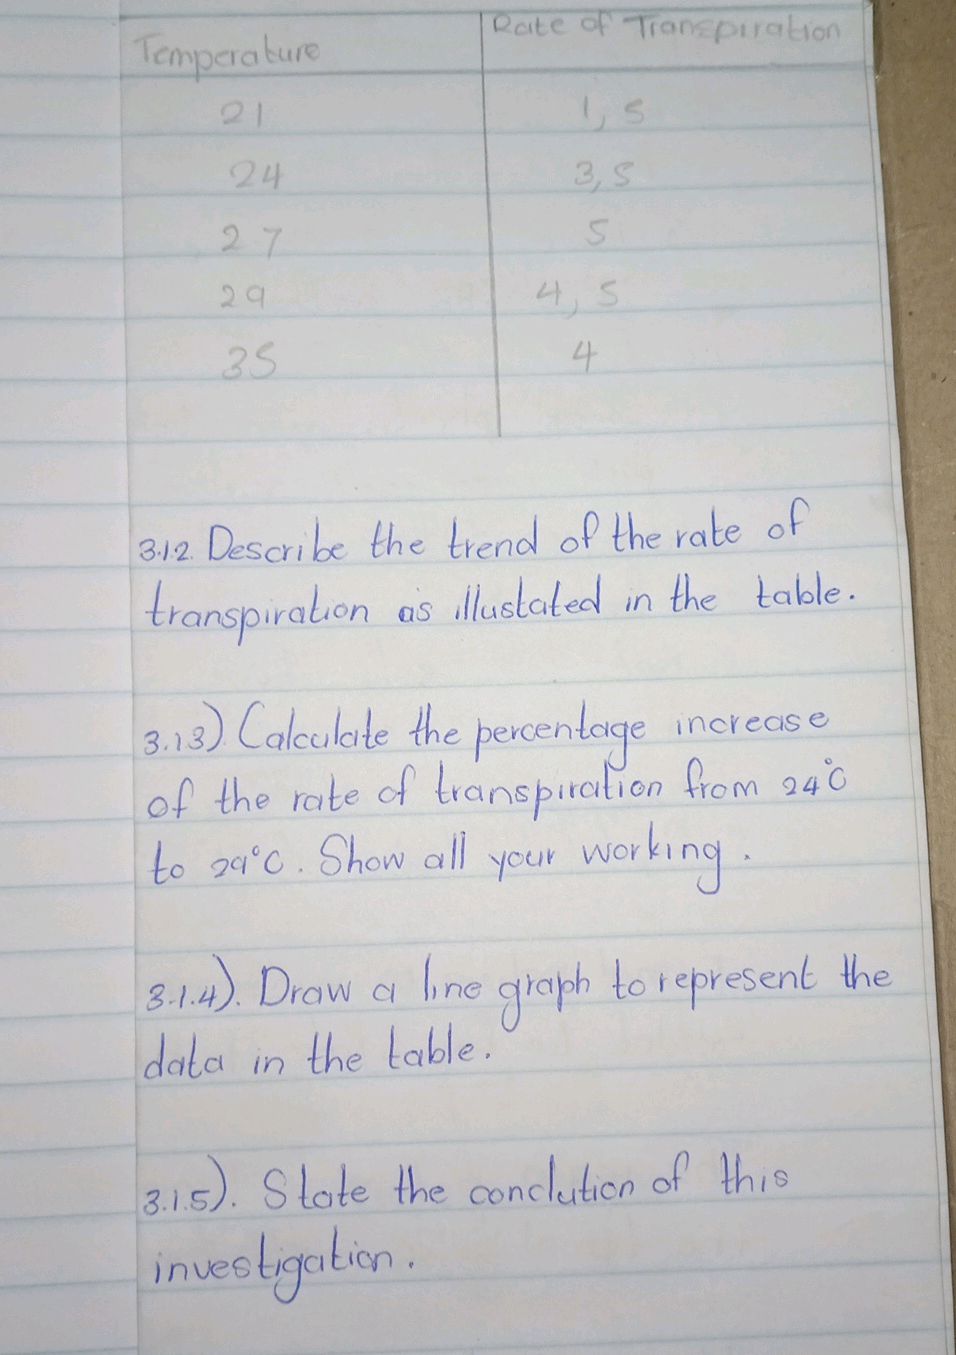 Temperature Rate of Transpiration
21 1,5
24 3,5
27 5
29 4,5
35 4
3.1.2. Describe the trend of the rate of
transpiration as illustated in the table.
3.13). Calculate the percentage increase
of the rate of transpiration from 24°C
to 29°C. Show all your working.
3.1.4). Draw a line graph to represent the
data in the table.
3.1.5). State the conclution of this
investigation.